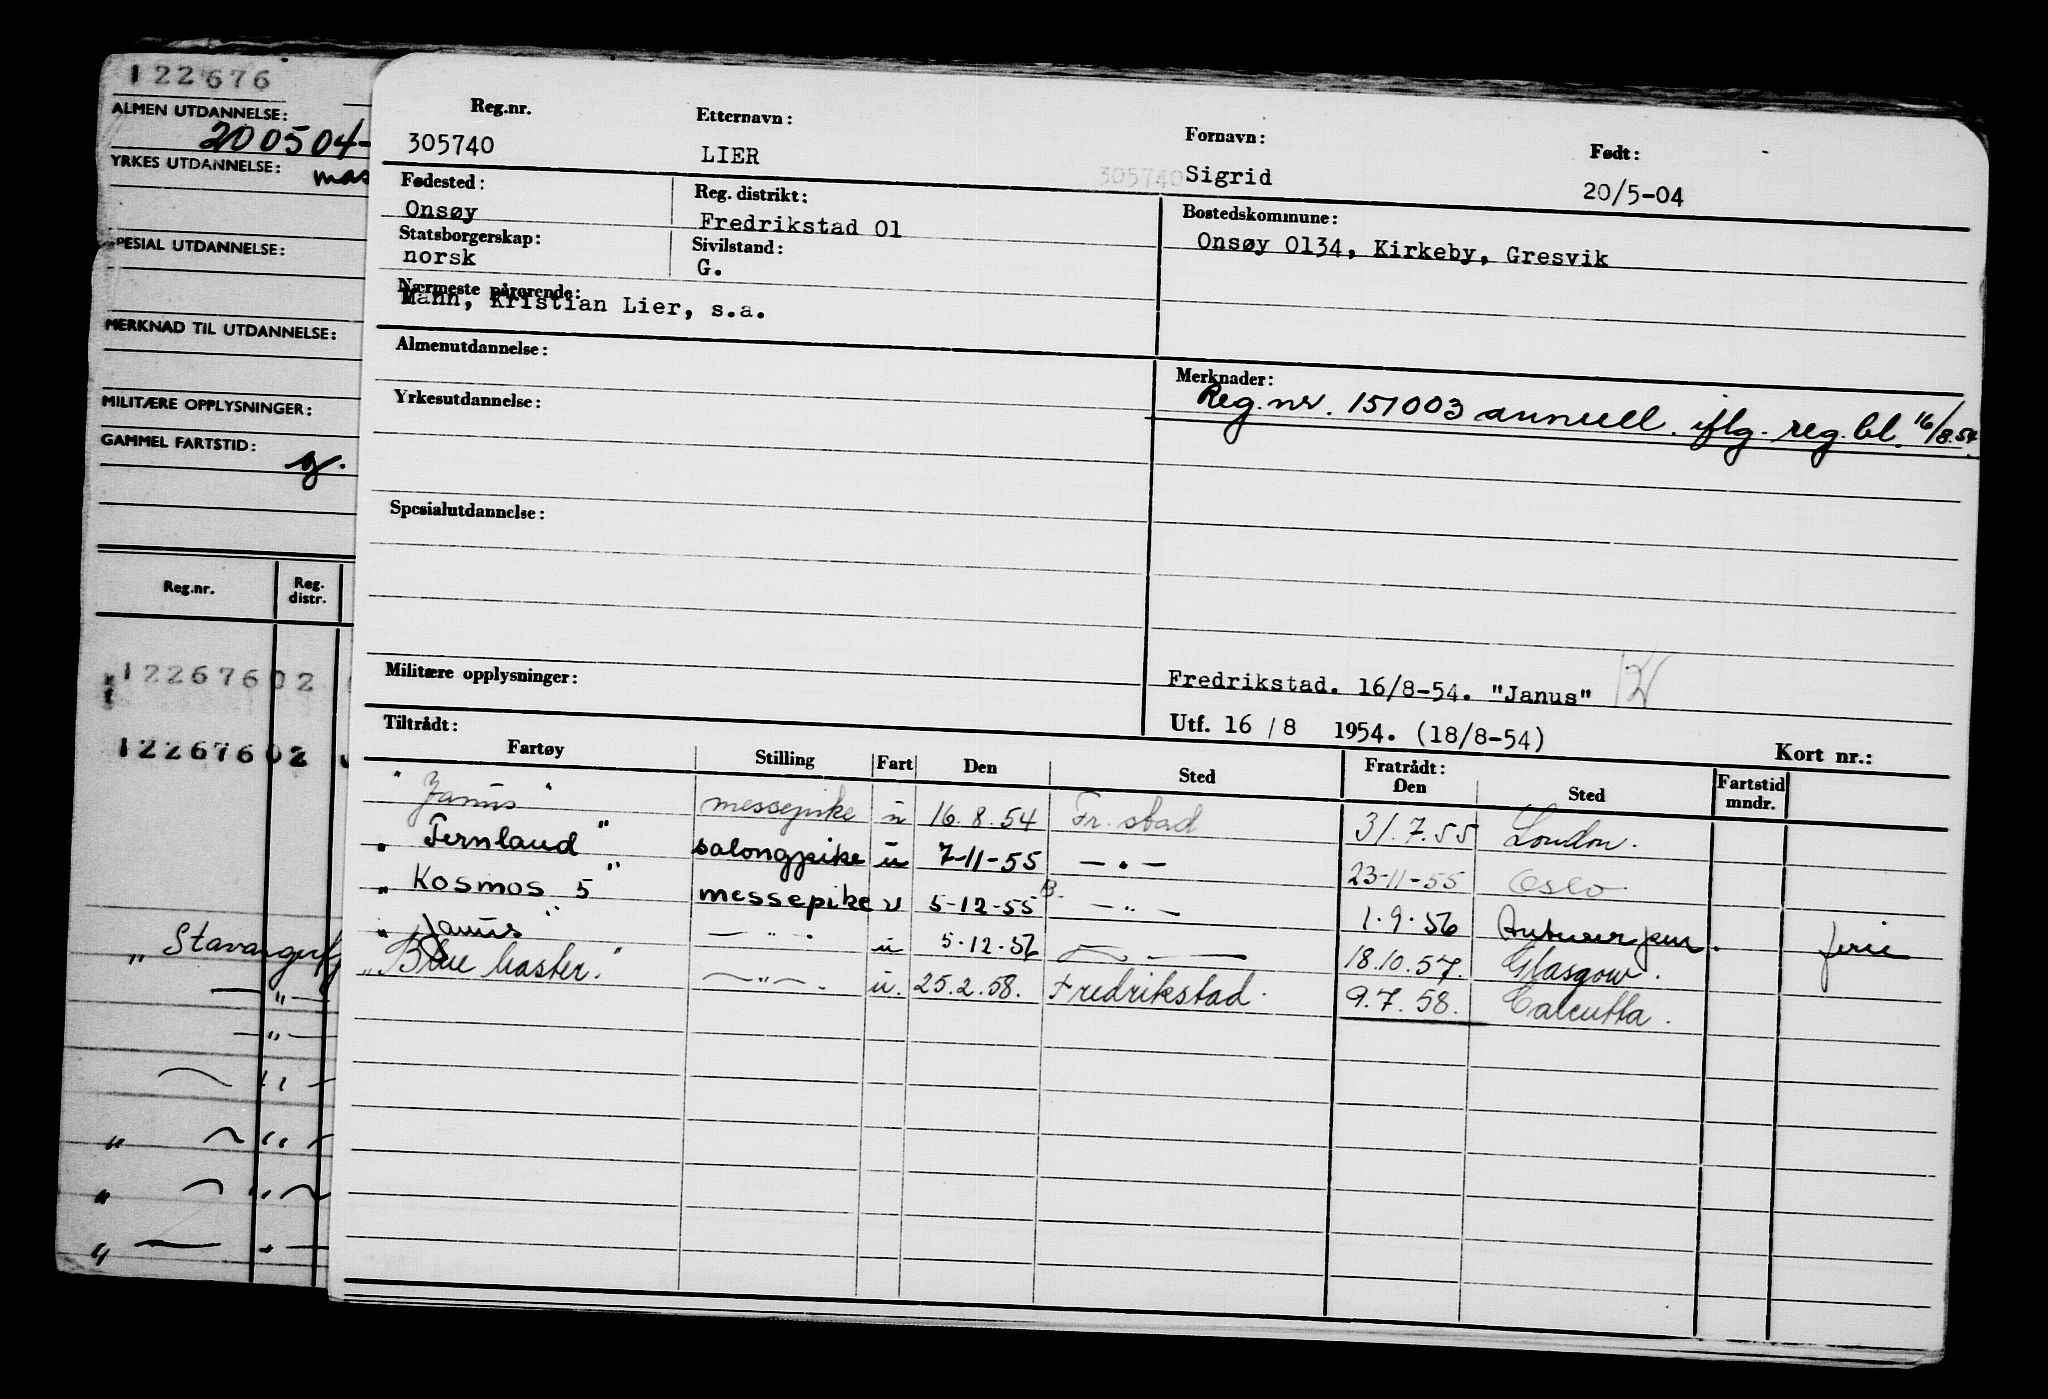 122676
ALMEN UTDANNELSE:
200504-
YRKES UTDANNELSE: mas
SPESIAL UTDANNELSE:
MERKNAD TIL UTDANNELSE:
MILITÆRE OPPLYSNINGER:
GAMMEL FARTSTID:
Reg.nr. Reg. distr.
12267602
12267602
„ Stavangerfj
— " —
— " —
Reg.nr. Etternavn: Fornavn: Født:
305740 LIER 305740 Sigrid 20/5-04
Fødested: Reg. distrikt: Bostedskommune:
Onsøy Fredrikstad 01 Onsøy 0134, Kirkeby, Gresvik
Statsborgerskap: Sivilstand:
norsk G.
Nærmeste pårørende:
Mann, Kristian Lier, s.a.
Almenutdannelse: Merknader:
Reg.nr. 151003 annull. iflg. reg.bl. 16/8.54.
Yrkesutdannelse:
Spesialutdannelse:
Militære opplysninger: Fredrikstad. 16/8-54. "Janus"
Utf. 16 / 8 1954. (18/8-54) Kort nr.:
Tiltrådt: Fratrådt:
Fartøy Stilling Fart Den Sted Den Sted Fartstid mndr.
"Janus" messepike u 16.8.54 Fr.stad 31.7.55 London.
„ Fernland " salongpike u 7-11-55 — " — 23-11-55 Oslo
„ Kosmos 5 " messepike u 5-12-55 — " — 1.9.56 Antwerpen. ferie
„ Janus " — " — u 5.12.56 — — 18.10.57. Glasgow.
„ Blue Master." — " — . u. 25.2.58. Fredrikstad. 9.7.58. Calcutta.